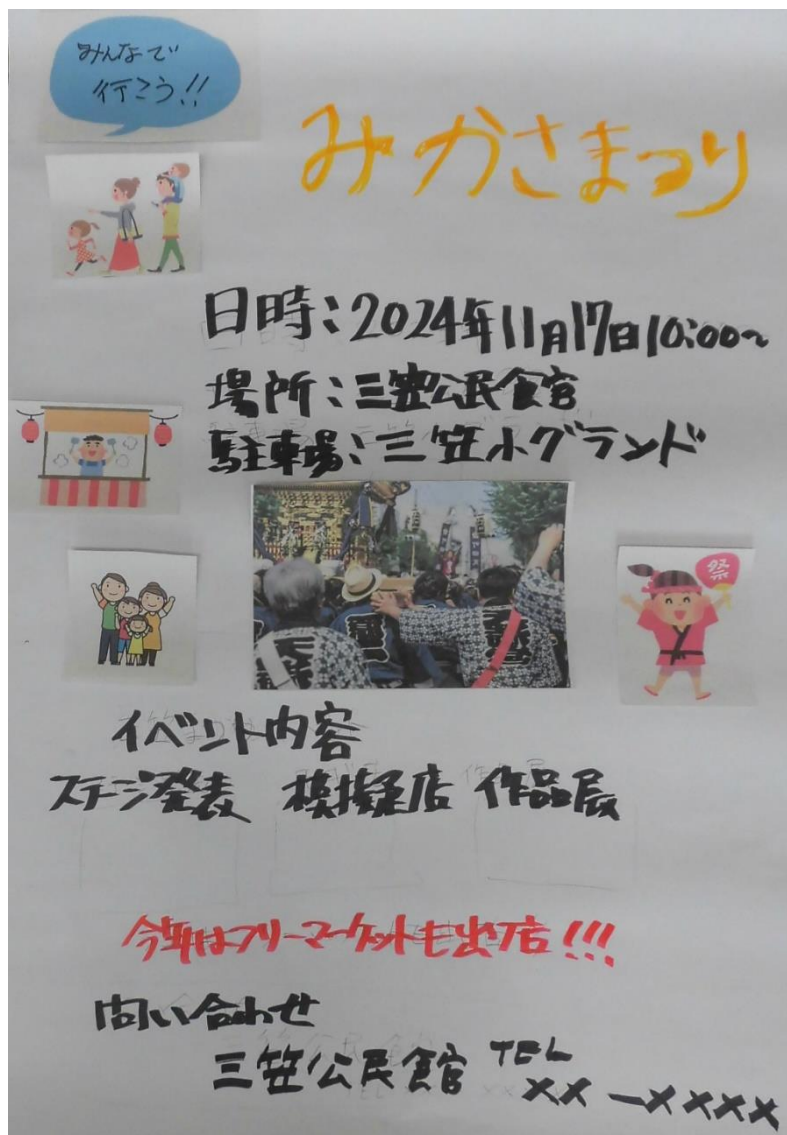 みんなで
行こう!!
みかさまつり
日時:2024年11月17日10:00~
場所:三笠公民館
駐車場:三笠小グランド
祭
イベント内容
ステージ発表 模擬店 作品展
今年はフリーマーケットも出店!!!
問い合わせ
三笠公民館 TEL
××-××××